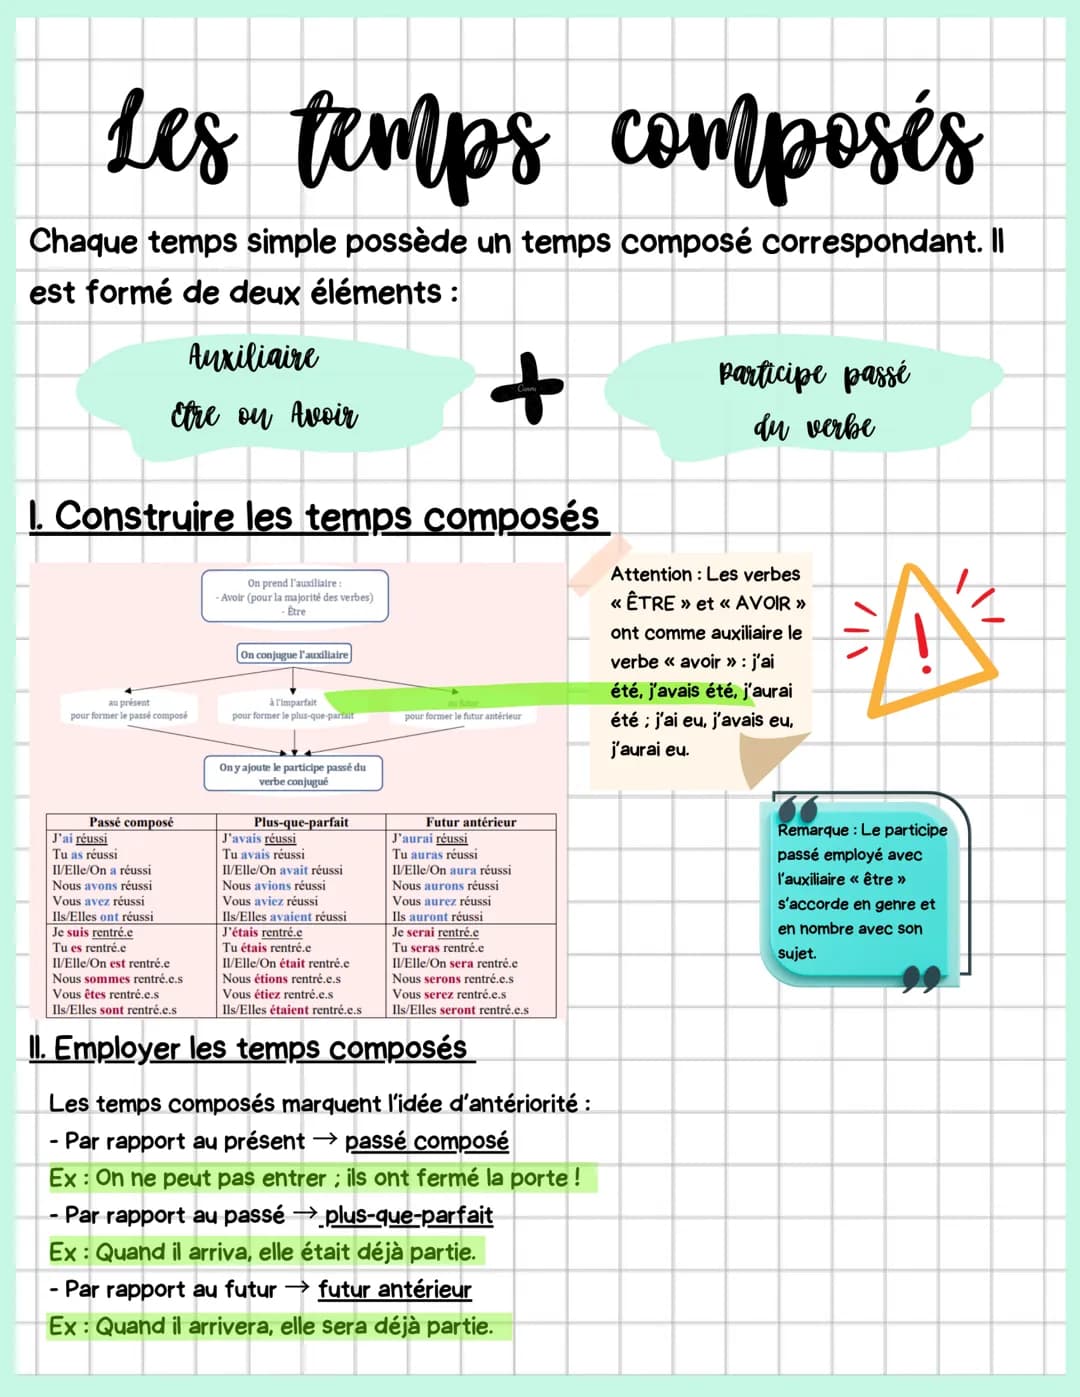 Les temps composés
Chaque temps simple possède un temps composé correspondant. Il
est formé de deux éléments :
Auxiliaire
Etre ou Avoir
+
Canva
Participe passé
du verbe
I. Construire les temps composés
On prend l'auxiliaire :
- Avoir (pour la majorité des verbes)
- Être
On conjugue l'auxiliaire
au présent
pour former le passé composé
à l'imparfait
pour former le plus-que-parfait
au futur
pour former le futur antérieur
On y ajoute le participe passé du
verbe conjugué
Passé composé Plus-que-parfait Futur antérieur
J'ai réussi J'avais réussi J'aurai réussi
Tu as réussi Tu avais réussi Tu auras réussi
Il/Elle/On a réussi Il/Elle/On avait réussi Il/Elle/On aura réussi
Nous avons réussi Nous avions réussi Nous aurons réussi
Vous avez réussi Vous aviez réussi Vous aurez réussi
Ils/Elles ont réussi Ils/Elles avaient réussi Ils auront réussi
Je suis rentré.e J'étais rentré.e Je serai rentré.e
Tu es rentré.e Tu étais rentré.e Tu seras rentré.e
Il/Elle/On est rentré.e Il/Elle/On était rentré.e Il/Elle/On sera rentré.e
Nous sommes rentré.e.s Nous étions rentré.e.s Nous serons rentré.e.s
Vous êtes rentré.e.s Vous étiez rentré.e.s Vous serez rentré.e.s
Ils/Elles sont rentré.e.s Ils/Elles étaient rentré.e.s Ils/Elles seront rentré.e.s
Attention : Les verbes
« ÊTRE » et « AVOIR »
ont comme auxiliaire le
verbe « avoir » : j'ai
été, j'avais été, j'aurai
été ; j'ai eu, j'avais eu,
j'aurai eu.
!
Remarque : Le participe
passé employé avec
l'auxiliaire « être »
s'accorde en genre et
en nombre avec son
sujet.
II. Employer les temps composés
Les temps composés marquent l'idée d'antériorité :
- Par rapport au présent → passé composé
Ex : On ne peut pas entrer ; ils ont fermé la porte !
- Par rapport au passé → plus-que-parfait
Ex : Quand il arriva, elle était déjà partie.
- Par rapport au futur → futur antérieur
Ex : Quand il arrivera, elle sera déjà partie.